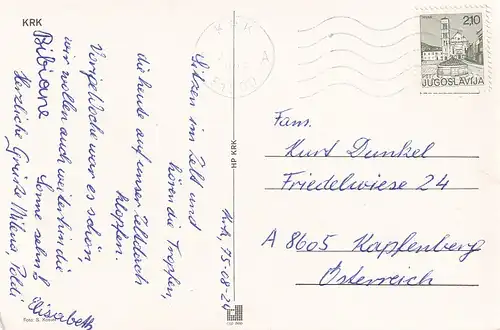 KRK
KRK
A
51500
2,10
JUGOSLAVIJA
Krk, 75-08-24
Sitzen im Zelt und
hören die Tropfen,
die heute auf unser Zeltdach
klopfen.
Vorige Woche war es schön,
wir wollen auch weiterhin die
Sonne sehn!
Herzliche Grüße Milena, Poldi
Bibiane
Elisabeth
HP KRK
Fam.
Kurt Dunkel
Friedelwiese 24
A 8605 Kapfenberg
Österreich